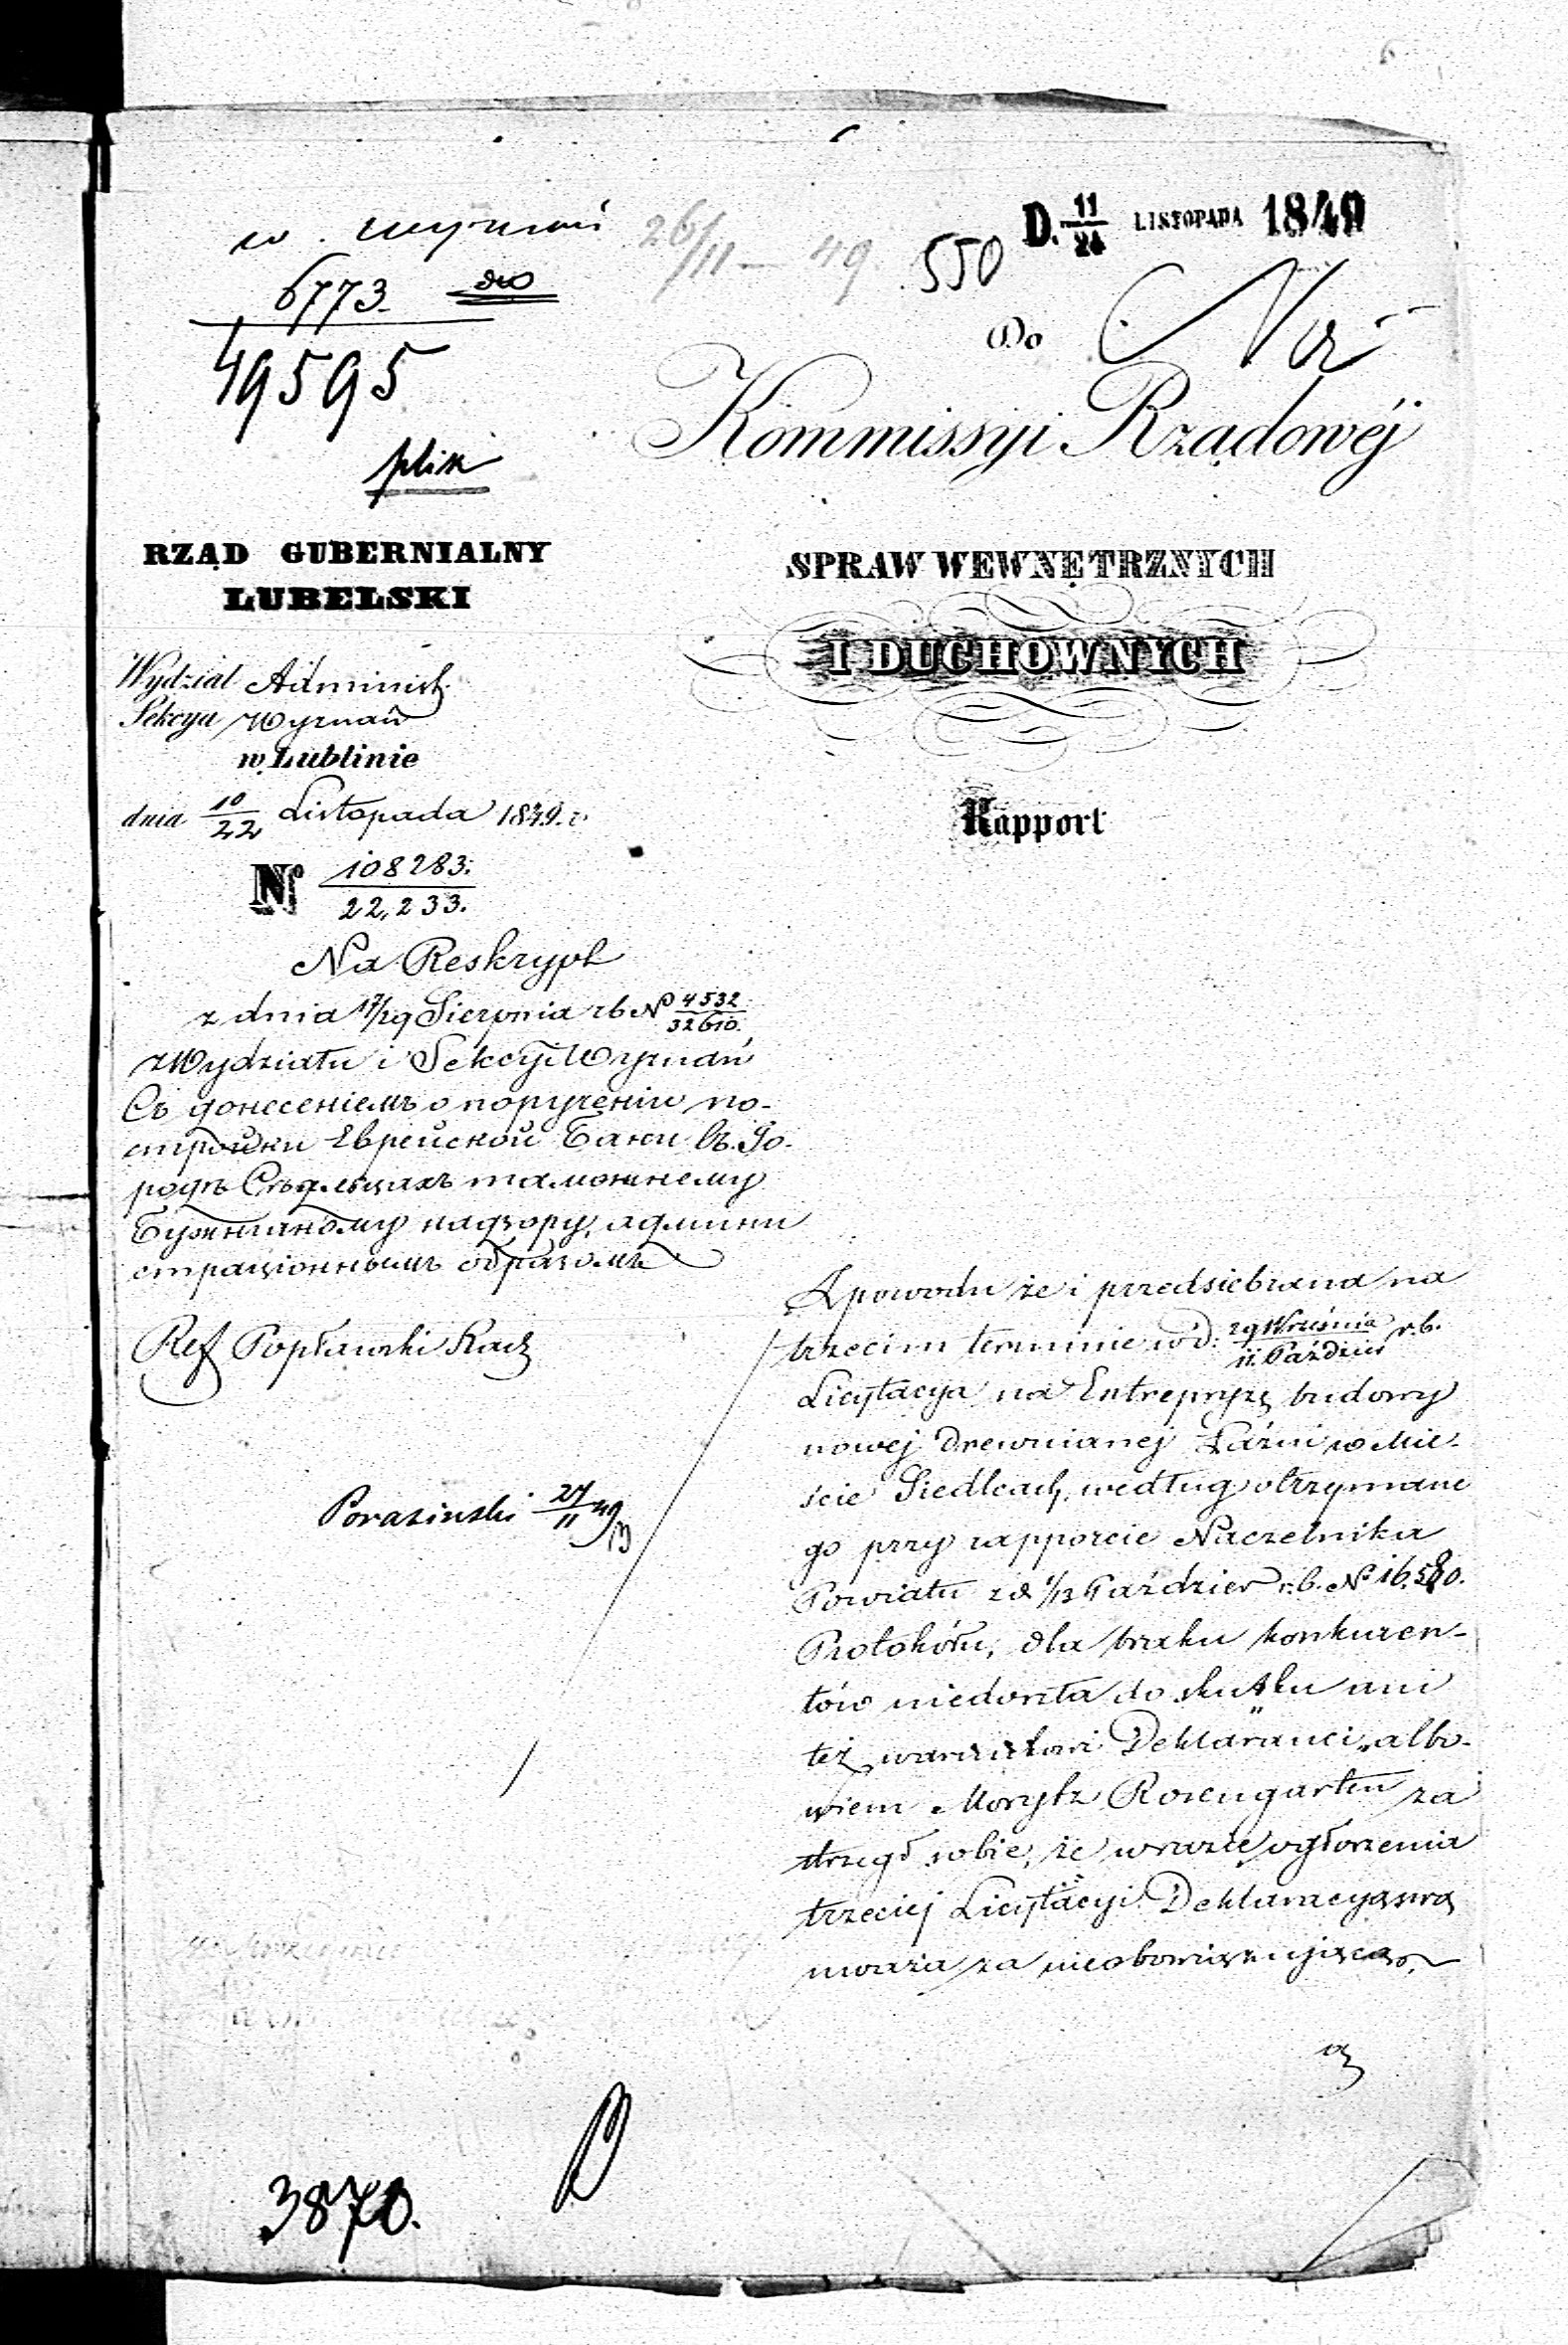 w. wyznań
26/11 – 49
550
D. 11/24 LISTOPADA 1849
6773
49595
plik
Do
Kommissyi Rządowéj
SPRAW WEWNĘTRZNYCH
I DUCHOWNYCH
Rapport
RZĄD GUBERNIALNY
LUBELSKI
Wydział Administ.
Sekcya Wyznań
w Lublinie
dnia 10/22 Listopada 1849. r.
N 108283./22,233.
Na Reskrypt
z dnia 17/29 Sierpnia rb No 4532/32610.
z Wydziału i Sekcyi Wyznań
Съ донесеніемъ о порученіи по-
стройки Еврейской Бани въ Го-
родѣ Сѣдльцахъ тамошнему
Бужничному надзору, админи
страціоннымъ образомъ
Ref Popławski Radz
Porasinski 27/11 49
Z powodu że i przedsiebrana na
trzecim terminie w d. 29 Września/11. Paździer r.b.
Licytacya na Entrepryzę budowy
nowej drewnianej Łaźni w Mie-
ście Siedlcach, według otrzymane
go przy rapporcie Naczelnika
Powiatu z d 1/13 Paździer r.b. No 16.580.
Protokółu, dla braku konkuren-
tów niedoszła do skutku ani
też warunkowi Deklaranci, albo-
wiem Morytz Rosengarten za
strzegł sobie, że w razie ogłoszenia
trzeciej Licytacyi Deklaracyą swą
uważa za nieobowiązującą,
a
3870.